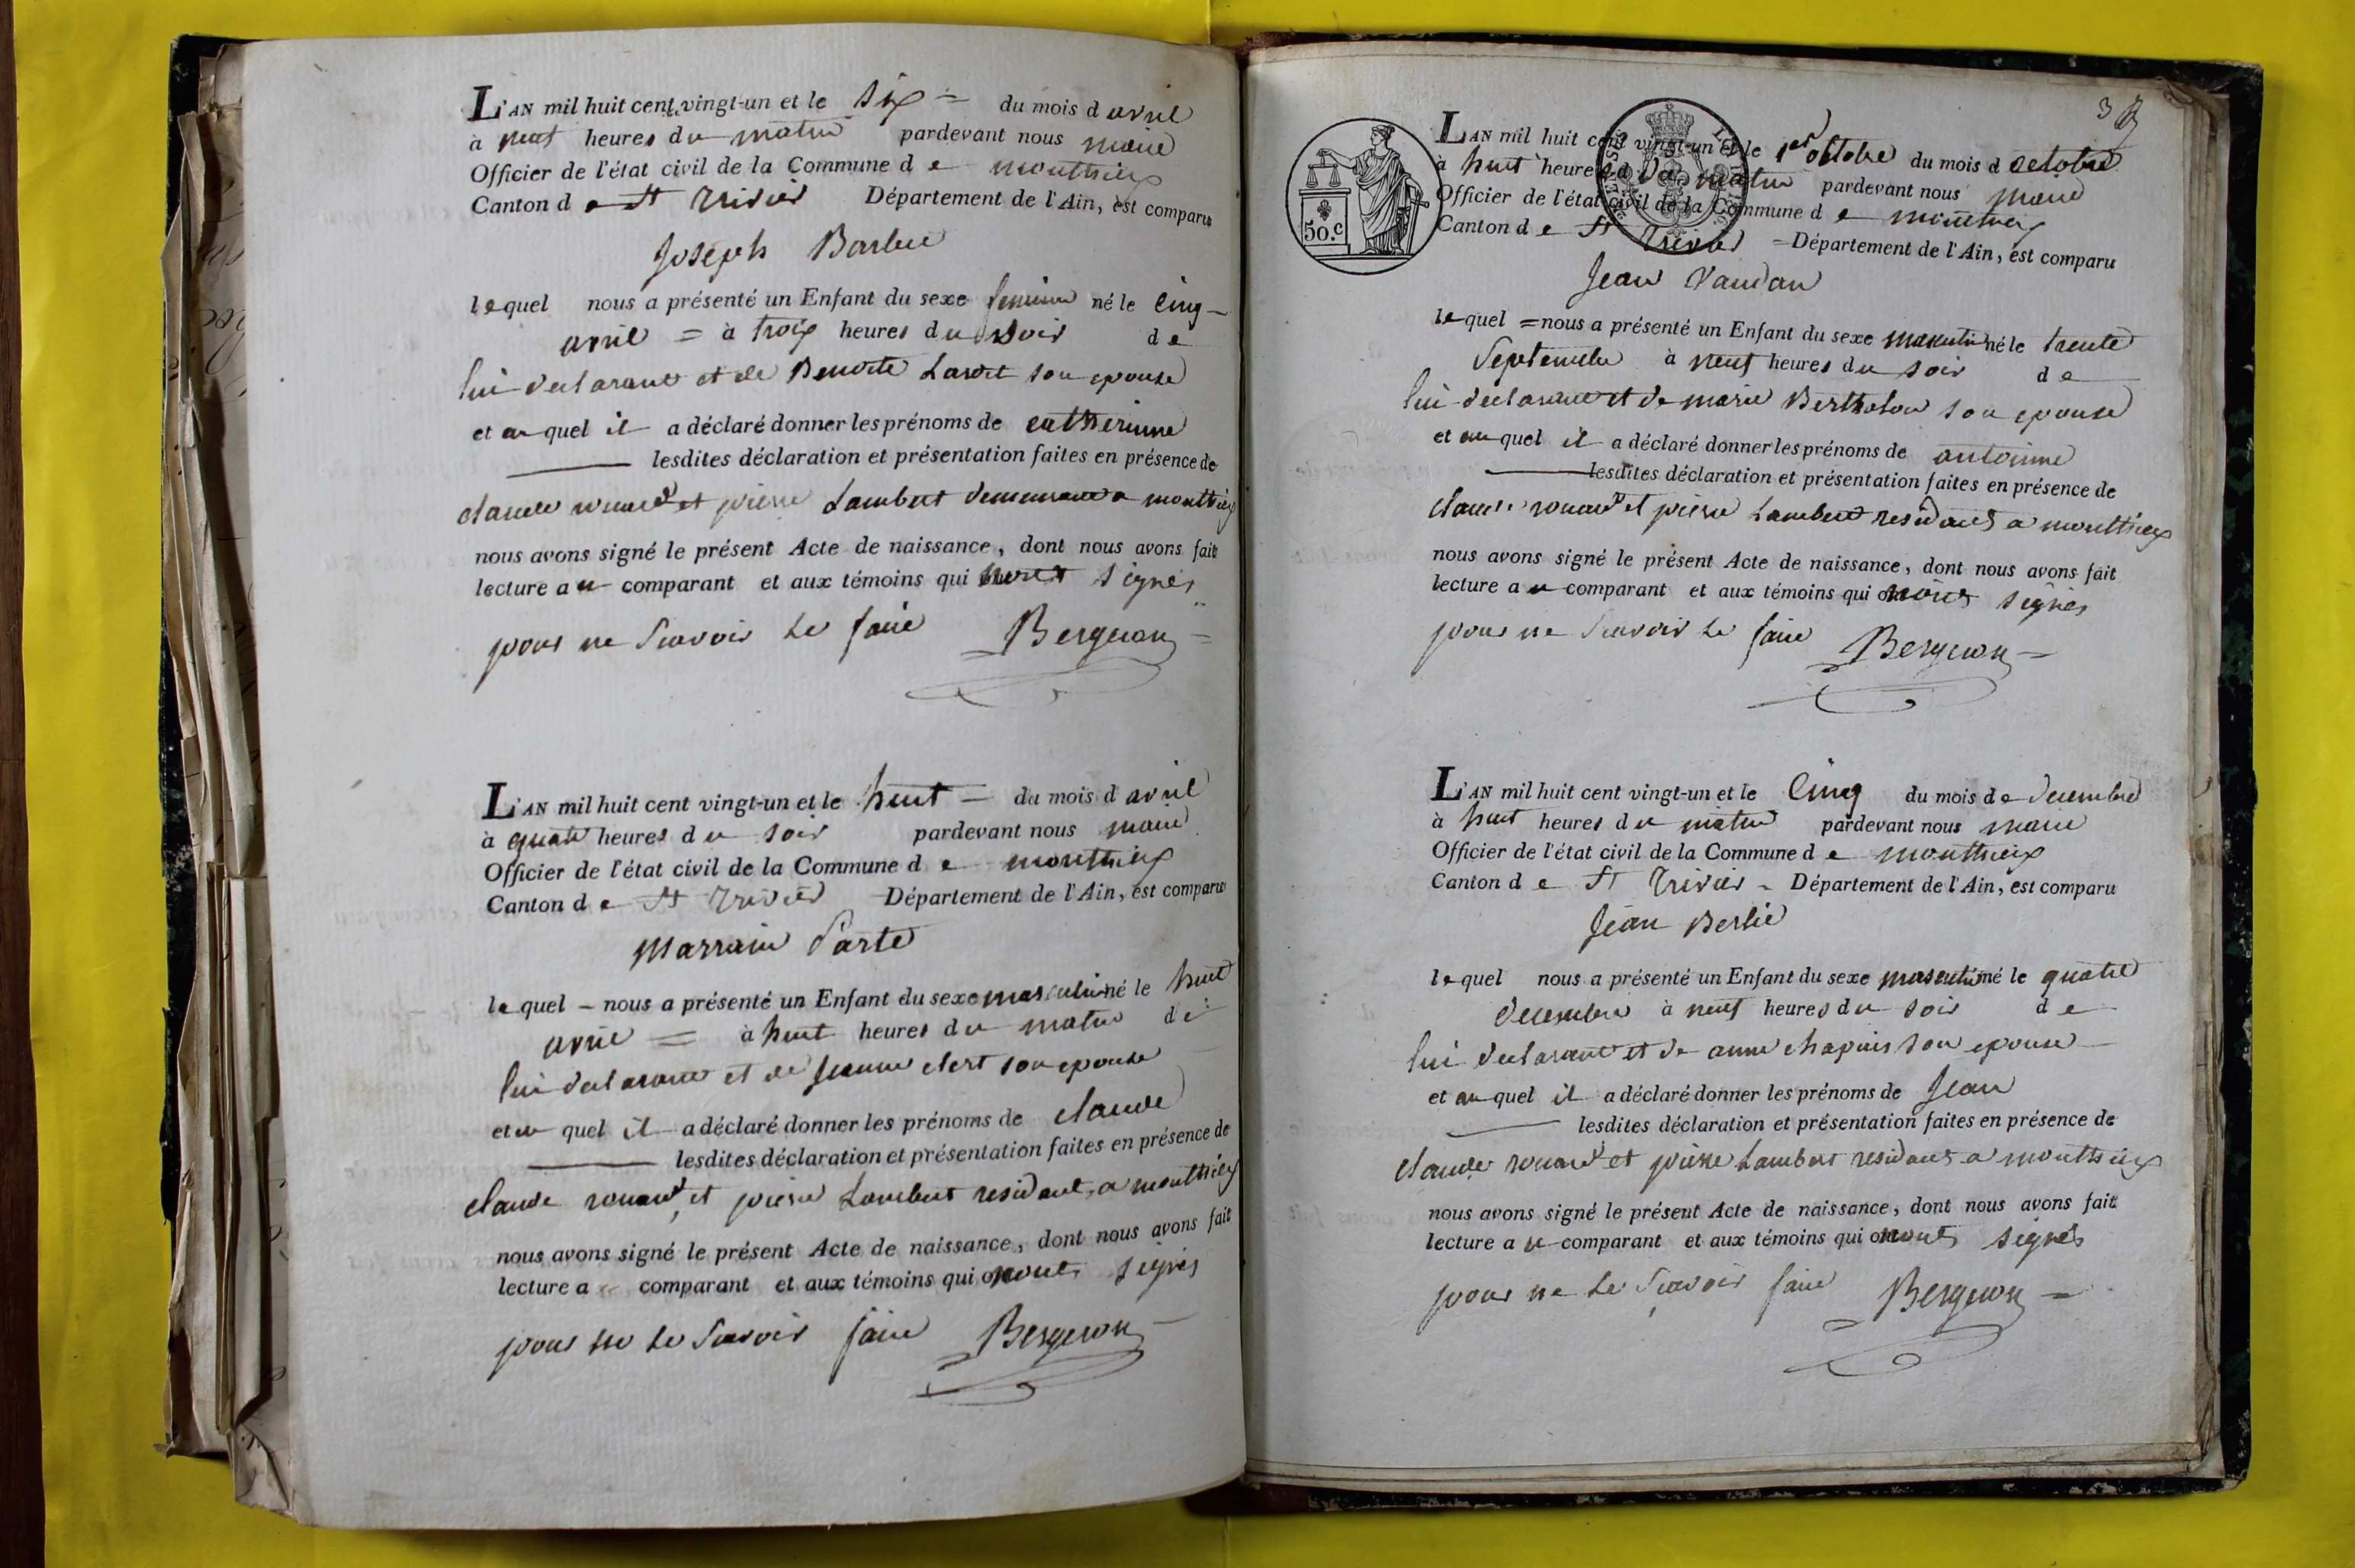 L'AN mil huit cent vingt-un et le six = du mois d avril
à neuf heures du matin pardevant nous maire
Officier de l'état civil de la Commune de monthieux
Canton de St Trivier Département de l'Ain, est comparu
Joseph Barbue
lequel nous a présenté un Enfant du sexe feminin né le cinq
avril = à trois heures du soir de
lui declarant et de Benoite son epouse
et au quel il a déclaré donner les prénoms de catherinne
lesdites déclaration et présentation faites en présence de
claude renard et pierre Lambert demeurant a monthieux
nous avons signé le présent Acte de naissance, dont nous avons fait
lecture au comparant et aux témoins qui nont signés
pour ne scavoir le faire Bergeron
L'AN mil huit cent vingt-un et le huit = du mois d avril
à quatre heures du soir pardevant nous maire
Officier de l'état civil de la Commune de monthieux
Canton de St Trivier Département de l'Ain, est comparu
Marrain
lequel – nous a présenté un Enfant du sexe masculin né le huit
avril = à huit heures du matin de
lui declarant et de Jeanne clert son epouse
et au quel il a déclaré donner les prénoms de claude
lesdites déclaration et présentation faites en présence de
claude renard et pierre Lambert residant a monthieux
nous avons signé le présent Acte de naissance, dont nous avons fait
lecture a comparant et aux témoins qui nont signés
pour ne le scavoir faire Bergeron
3
50.c
L'AN mil huit cent vingt-un et le 1er octobre du mois d octobre
à huit heures du matin pardevant nous maire
Officier de l'état civil de la Commune de monthieux
Canton de St Trivier = Département de l'Ain, est comparu
Jean Vaudan
lequel = nous a présenté un Enfant du sexe masculin né le trente
Septembre à neuf heures du soir de
lui declarant et de marie Bertholon son epouse
et au quel il a déclaré donner les prénoms de antoinne
lesdites déclaration et présentation faites en présence de
claude renard et pierre Lambert residant a monthieux
nous avons signé le présent Acte de naissance, dont nous avons fait
lecture au comparant et aux témoins qui nont signés
pour ne scavoir le faire Bergeron
L'AN mil huit cent vingt-un et le Cinq du mois de decembre
à huit heures du matin pardevant nous maire
Officier de l'état civil de la Commune de monthieux
Canton de St Trivier – Département de l'Ain, est comparu
Jean Berlie
lequel nous a présenté un Enfant du sexe masculin né le quatre
decembre à neuf heures du soir de
lui declarant et de anne chapuis son epouse
et au quel il a déclaré donner les prénoms de Jean
lesdites déclaration et présentation faites en présence de
claude renard et pierre Lambert residant a monthieux
nous avons signé le présent Acte de naissance, dont nous avons fait
lecture au comparant et aux témoins qui nont signés
pour ne le scavoir faire Bergeron